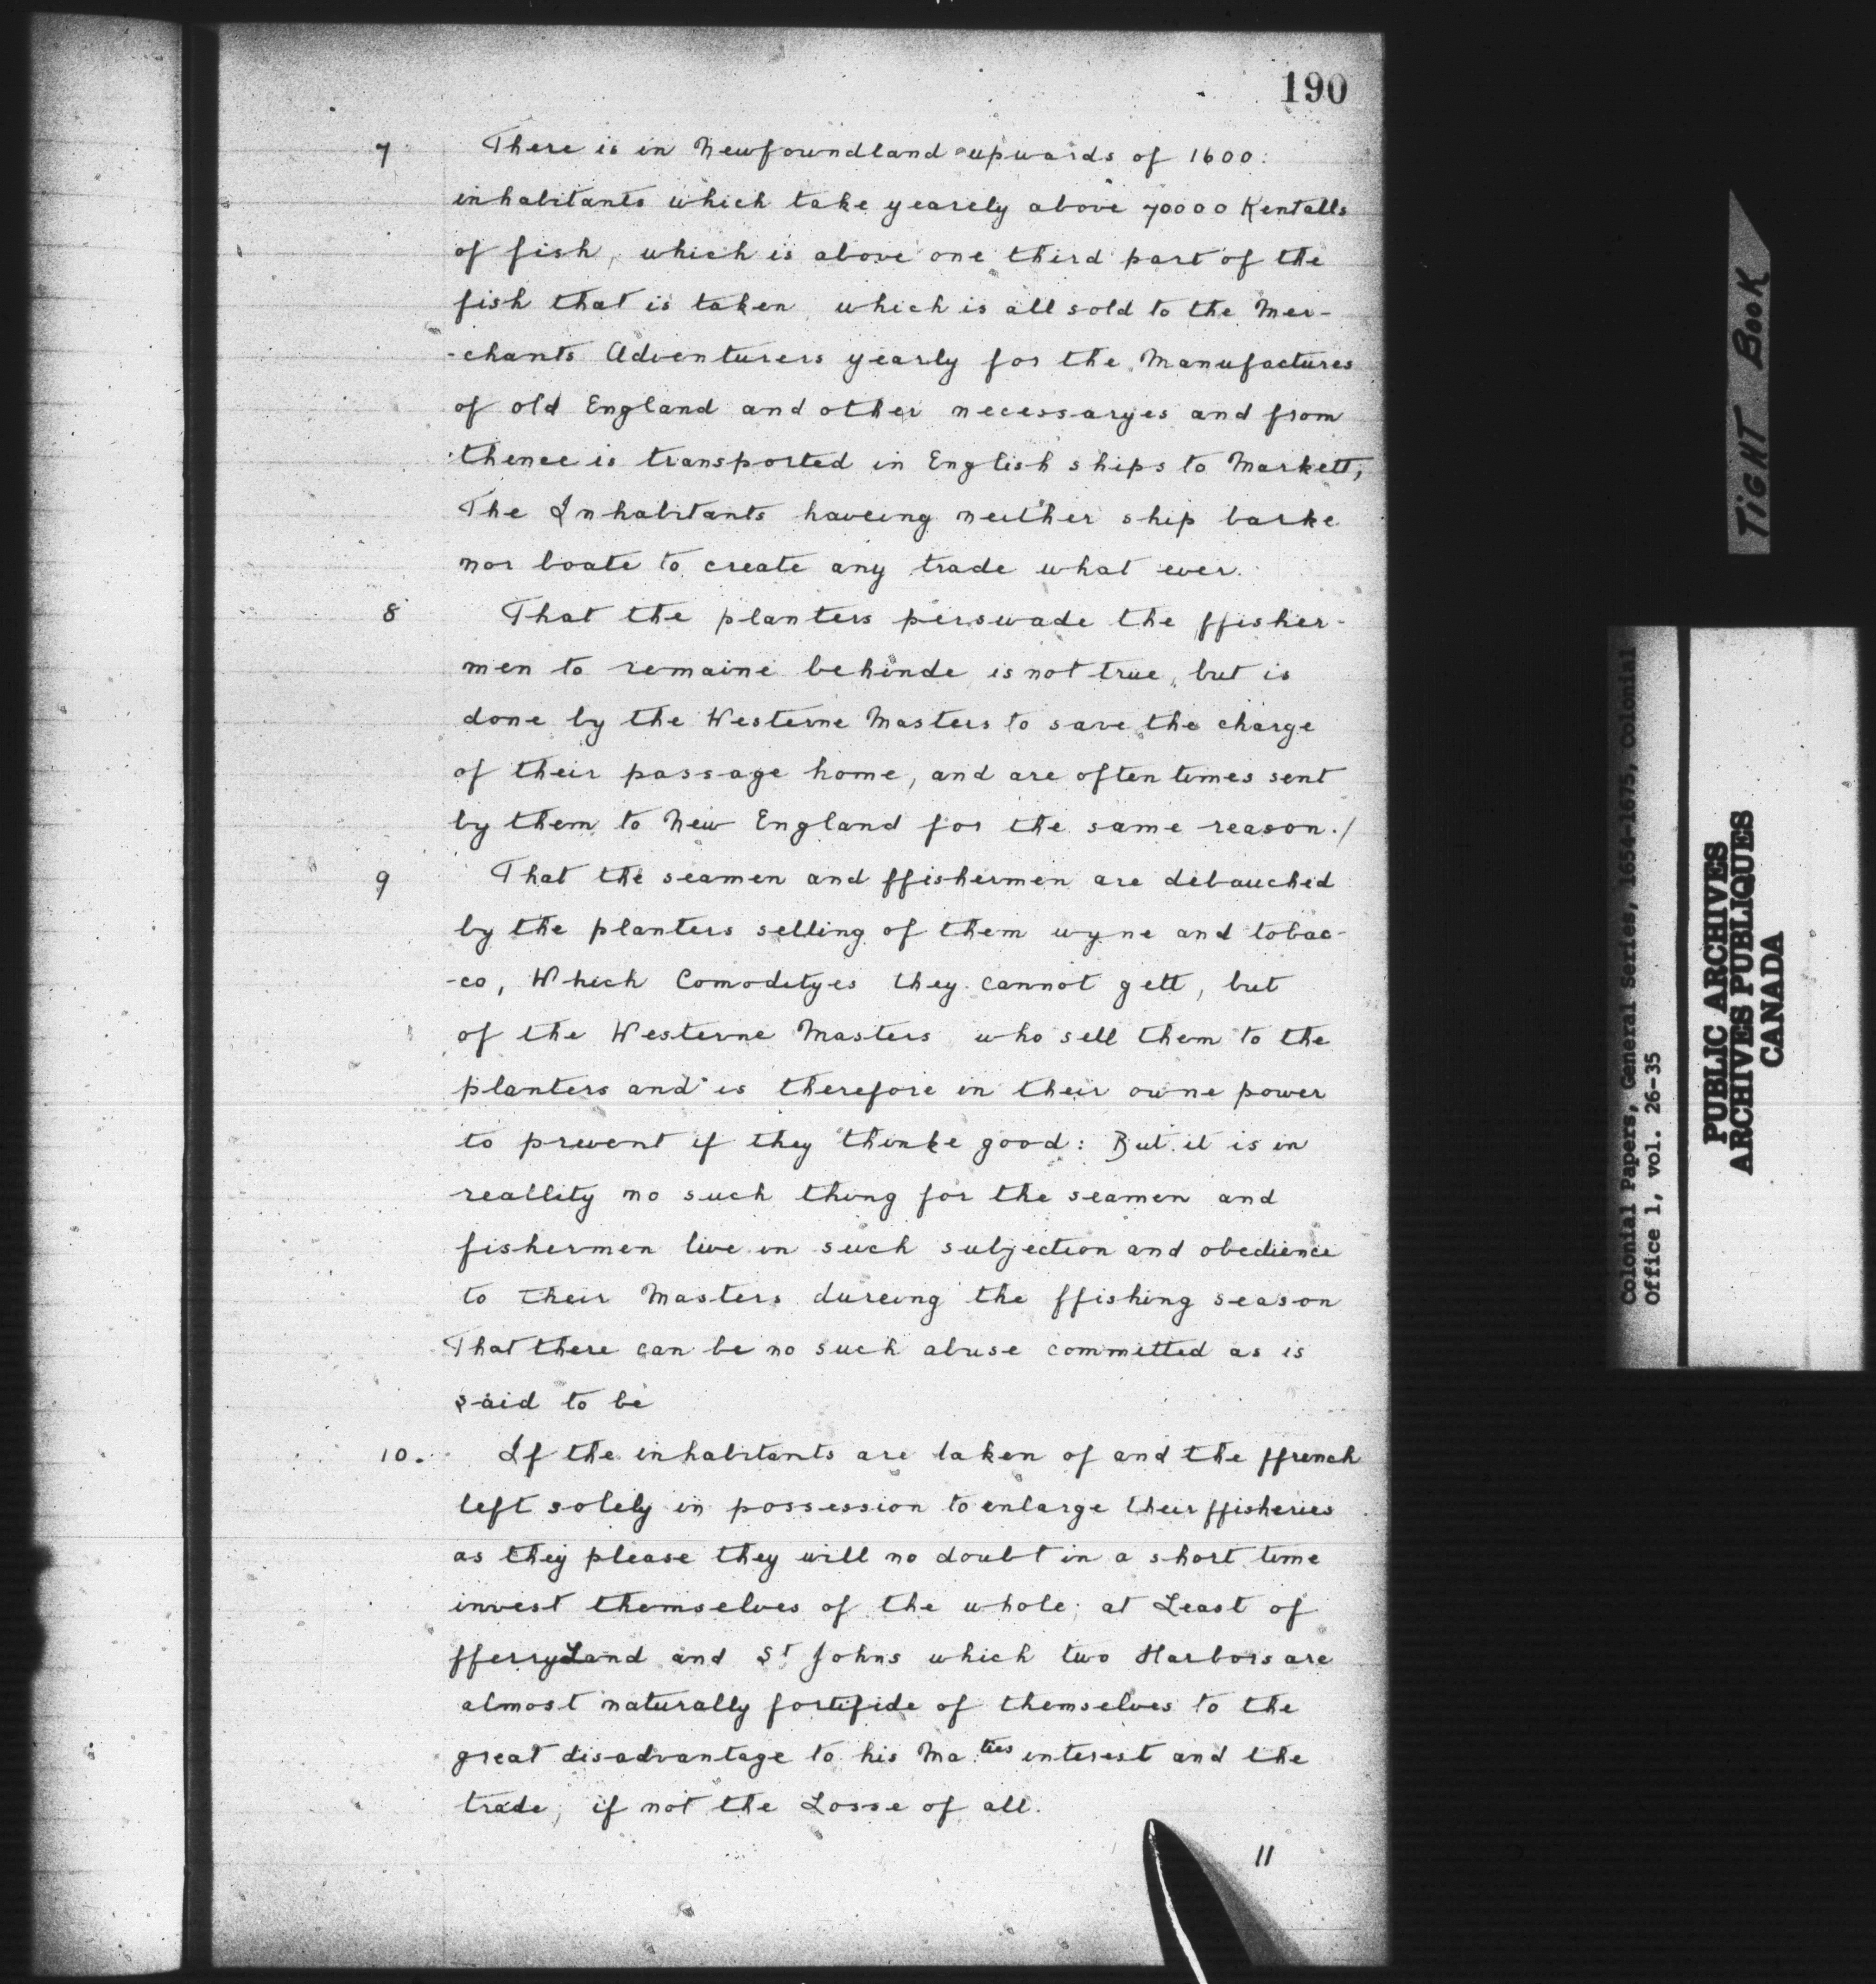 190
7 There is in Newfoundland upwards of 1600:
inhabitants which take yearely above 70000 Kentalls
of fish, which is above one third part of the
fish that is taken, which is all sold to the Mer-
-chants Adventurers yearly for the Manufactures
of old England and other necessaryes and from
thence is transported in English ships to Markett,
The Inhabitants haveing neither ship barke
nor boate to create any trade what ever.
8 That the planters perswade the ffisher-
men to remaine behinde, is not true, but is
done by the Westerne Masters to save the charge
of their passage home, and are often times sent
by them to New England for the same reason./
9 That the seamen and ffishermen are debauched
by the planters selling of them wyne and tobac-
-co, Which Comodityes they cannot gett, but
of the Westerne Masters who sell them to the
planters and is therefore in their owne power
to prevent if they thinke good: But it is in
reallity no such thing for the seamen and
fishermen live in such subjection and obedience
to their Masters dureing the ffishing season
That there can be no such abuse committed as is
said to be
10. If the inhabitants are taken of and the ffrench
left solely in possession to enlarge their ffisheries
as they please they will no doubt in a short time
invest themselves of the whole; at Least of
fferryLand and St Johns which two Harbors are
almost naturally fortifide of themselves to the
great disadvantage to his Ma.ties interest and the
trade, if not the Losse of all.
11
TIGHT BOOK
Colonial Papers, General Series, 1654-1675, Colonial
Office 1, vol. 26-35
PUBLIC ARCHIVES
ARCHIVES PUBLIQUES
CANADA